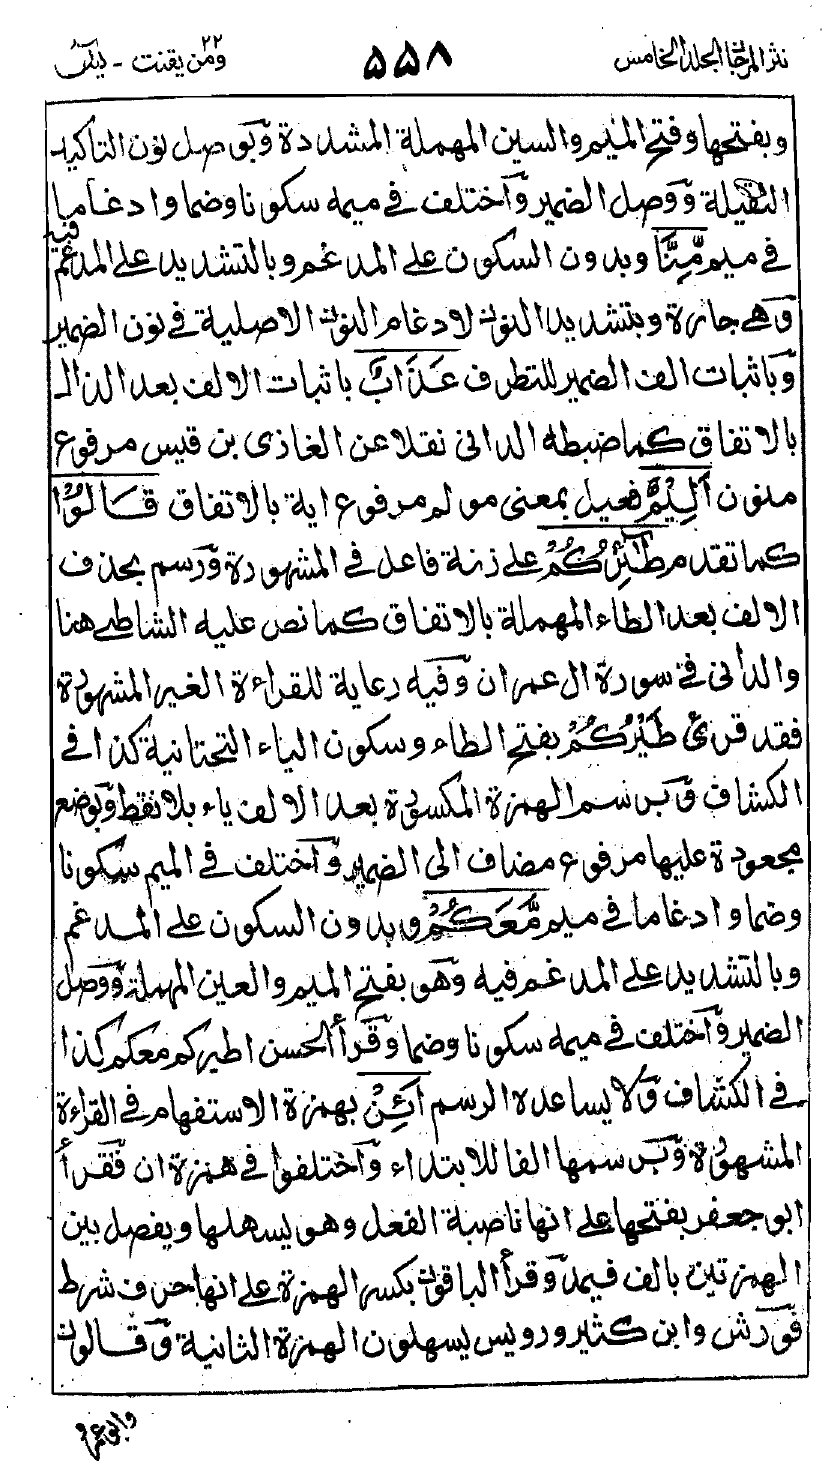 نثر المرجان المجلد الخامس
۵۵۸
ومن يقنت ٢٢ - يٰسٓ
وبفتحها وفتح الميم والسين المهملة المشددة وبوصل نون التاكيد
الثقيلة ووصل الضمير واختلف في ميمه سكونا وضما وادغاما
في ميم مِّنَّا وبدون السكون على المدغم وبالتشديد على المدغم فيه
وهي جارة وبتشديد النون لادغام النون الاصلية في نون الضمير
وباثبات الف الضمير للتطرف عَذَابٌ باثبات الالف بعد الذال
بالاتفاق كما ضبطه الداني نقلا عن الغازى بن قيس مرفوع
منون اَلِيْمٌ فعيل بمعنى مولم مرفوع اية بالاتفاق قَالُوْا
كما تقدم طَٰٓئِرُكُمْ على زنة فاعل في المشهورة ورسم بحذف
الالف بعد الطاء المهملة بالاتفاق كما نص عليه الشاطبي هنا
والداني في سورة ال عمران وفيه رعاية للقراءة الغير المشهورة
فقد قرئ طَيْرُكُمْ بفتح الطاء وسكون الياء التحتانية كذا في
الكشاف وبرسم الهمزة المكسورة بعد الالف ياء بلا نقط وبوضع
مجعودة عليها مرفوع مضاف الى الضمير واختلف في الميم سكونا
وضما وادغاما في ميم مَّعَكُمْ وبدون السكون على المدغم
وبالتشديد على المدغم فيه وهو بفتح الميم والعين المهملة ووصل
الضمير واختلف في ميمه سكونا وضما وقرأ الحسن اطيركم معكم كذا
في الكشاف ولا يساعده الرسم اَئِنْ بهمزة الاستفهام في القراءة
المشهورة وبرسمها الفا للابتداء واختلفوا في همزة ان فقرأ
ابو جعفر بفتحها على انها ناصبة الفعل وهو يسهلها ويفصل بين
الهمزتين بالف فيمد وقرأ الباقون بكسر الهمزة على انها حرف شرط
فورش وابن كثير ورويس يسهلون الهمزة الثانية وقالون
وابو عمرو